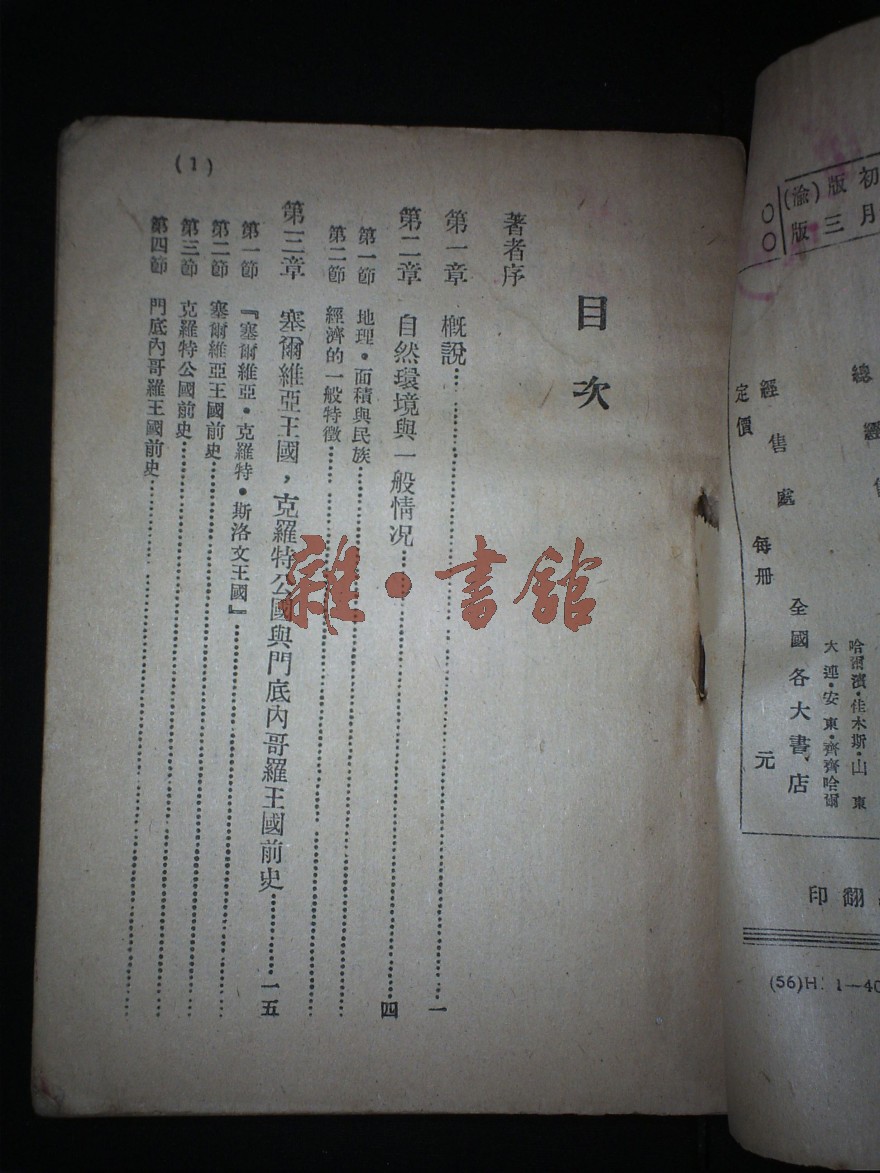 (1)
目次
著者序
第一章 概說…………一
第二章 自然環境與一般情況…………四
第一節 地理・面積與民族…………
第二節 經濟的一般特徵…………
第三章 塞爾維亞王國，克羅特公國與門底內哥羅王國前史…………一五
第一節 『塞爾維亞・克羅特・斯洛文王國』…………
第二節 塞爾維亞王國前史…………
第三節 克羅特公國前史…………
第四節 門底內哥羅王國前史…………
雜・書館
初版(渝)
月三版
總經售
經售處 全國各大書店
哈爾濱・佳木斯・山東
大連・安東・齊齊哈爾
定價 每冊 元
翻印
(56)H: 1—40